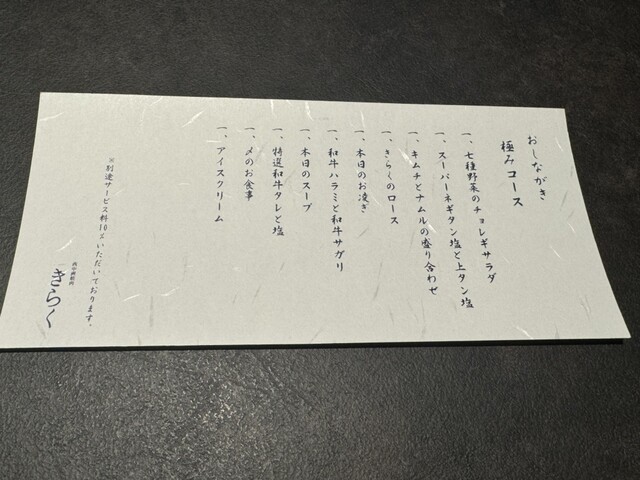 おしながき
極みコース
一、七種野菜のチョレギサラダ
一、スーパーネギタン塩と上タン塩
一、キムチとナムルの盛り合わせ
一、きらくのロース
一、本日のお凌ぎ
一、和牛ハラミと和牛サガリ
一、本日のスープ
一、特選和牛タレと塩
一、〆のお食事
一、アイスクリーム
※別途サービス料10%いただいております。
きらく